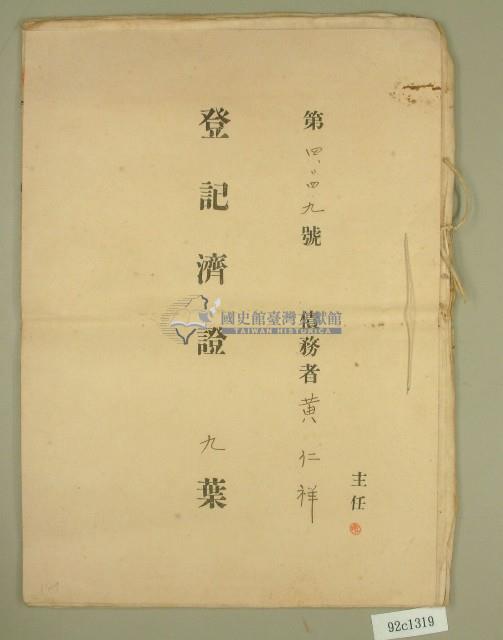 主任
第四、〇四九號 債務者黃仁祥
登記濟證 九葉
國史館臺灣文獻館
TAIWAN HISTORICA
92c1319